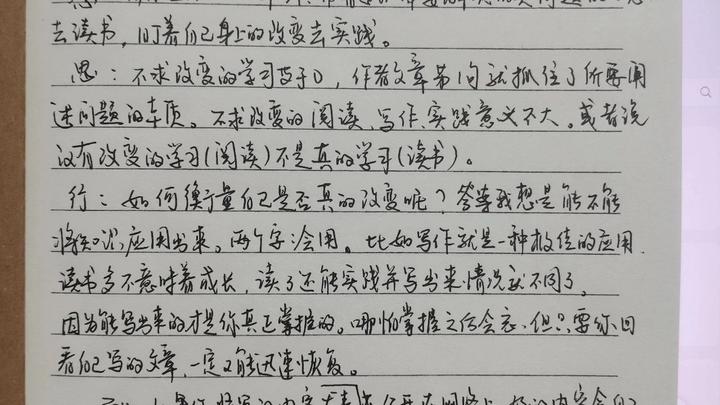 去读书，盯着自己身上的改变去实践。
思：不求改变的学习等于0，作者文章第1句就抓住了所要阐
述问题的本质。不求改变的阅读、写作、实践意义不大。或者说
没有改变的学习(阅读)不是真的学习(读书)。
行：如何衡量自己是否真的改变呢？答案我想是能不能
将知识应用出来。两个字：会用。比如写作就是一种极佳的应用，
读书多不意味着成长，读了还能实践并写出来，情况就不同了，
因为能写出来的才是你真正掌握的。哪怕掌握之后会忘，但只要你回
看自己写的文章，一定又能迅速恢复。